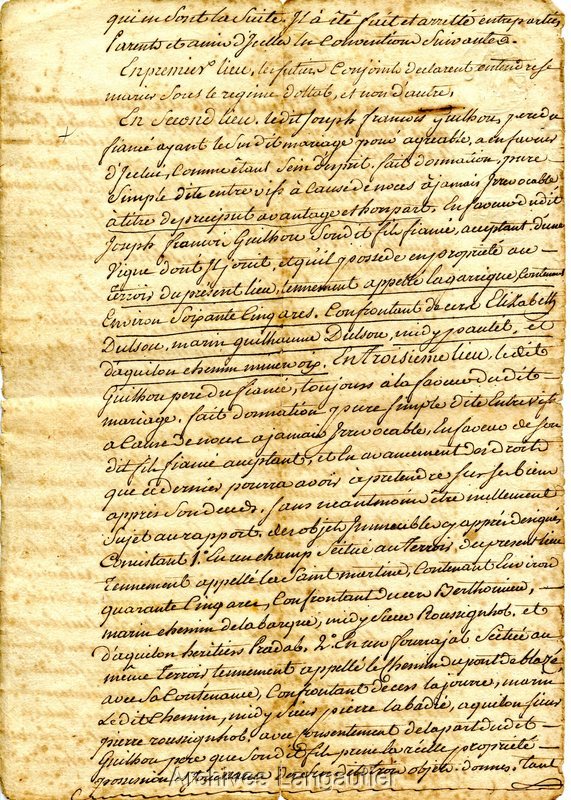 qui en sont la Suite. Il a été fait et arretté entre parties
Parents et amis d'Icelles les Conventions Suivantes.
En premier lieu, les futurs Conjoints declarent entendre se
marier sous le regime dottal, et non d'autre.
En Second lieu. ledit Joseph francois Guilhou, pere du
fiancé ayant le susdit mariage pour agreable, a en faveur
d'Icelui, Comme étant Sein d'esprit. fait donnation, pure
Simple dite entre vifs à Cause de noces à jamais Irrevocable
à titre de preciput avantage et hors part. En faveur dudit
Joseph francois Guilhou Sondit fils fiancé, acceptant. d'une
Vigne dont Il jouit, et qu'il possede en propriété au
Terroir du present lieu, tennement appellé lagarrigue, Contenant
Environ Soixante Cinq ares. Confrontant de cers Elizabeth
Dulsou, marin guilhaume Dulsou, midy pautet, et
d'aquilon chemin minervois. En Troisieme lieu, ledit
Guilhou pere du fiancé, toujours à la faveur dudit
mariage. fait donnation pure Simple dite Entre vifs
a Cause de noces a jamais Irrevocable, En faveur de son
dit fils fiancé acceptant, et En avancement des droits
que ce dernier pourra avoir à pretendre sur ses biens
après Son deces. Sans neantmoins être nullement
Sujet au rapport. des objets Immeubles cy après designés
Consistant 1.° En un champ Scitué au Terroir, du present lieu
Tennement appellé les Saint martine, Contenant Environ
quarante Cinq ares, Confrontant de cers Berthomieu,
marin chemin de la barque, midy Sieur Roussignhol. et
d'aquilon heritiers Pradal. 2.° En un fourrajal Scitué au
meme Terroir, tennement appellé le Chemin du pont de
avec sa Contenance, Confrontant de cers lajourre, marin
Ledit Chemin, midy Sieur pierre labadié, aquilon Sieur
pierre roussignhol. avec Consentement de la part dudit
Guilhou pere que Sondit fils prene la réelle propriété
possession et jouissance des susdits trois objets donnés. Tant
Archives Langaulier